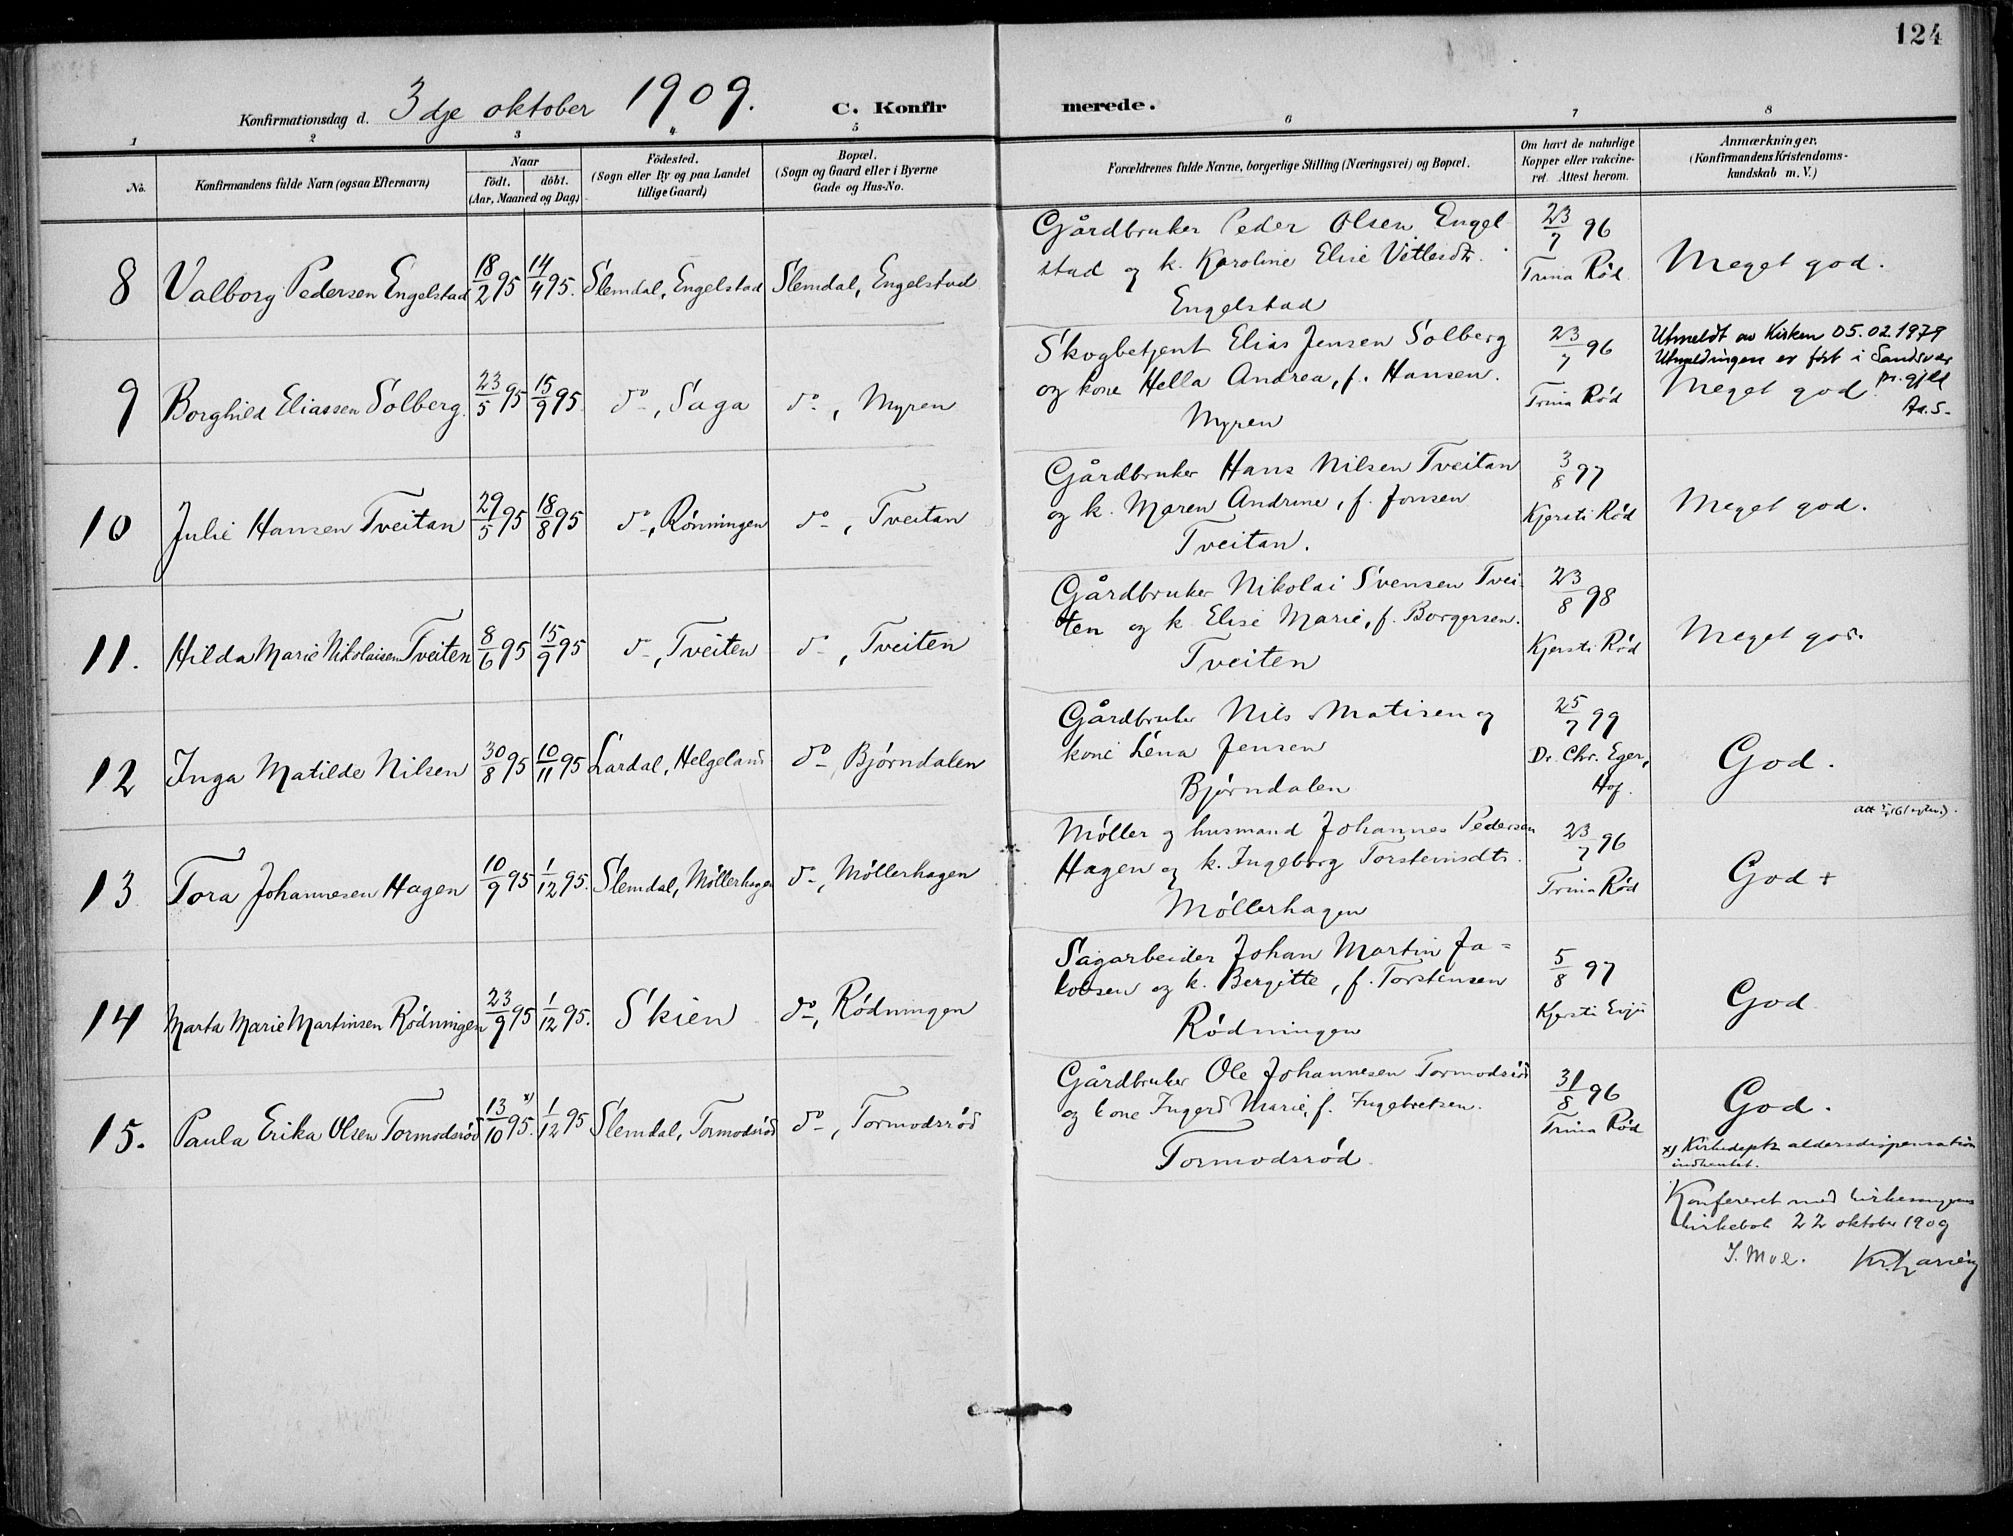 124
Konfirmationsdag d. 3dje oktober 1909. C. Konfir merede.
1 2 3 4 5 6 7 8
No. Konfirmandens fulde Navn (ogsaa Efternavn) Naar født. døbt. (Aar, Maaned og Dag) Födested. (Sogn eller By og paa Landet tillige Gaard) Bopæl. (Sogn og Gaard eller i Byerne Gade og Hus-No. Forældrenes fulde Navne, borgerlige Stilling (Næringsvei) og Bopæl. Om havt de naturlige Kopper eller vakcineret. Attest herom. Anmærkninger. (Konfirmandens Kristendomskundskab m. V.)
8 Valborg Pedersen Engelstad 18/2 95 14/4 95. Slemdal, Engelstad Slemdal, Engelstad
Gårdbruker Peder Olsen Engel
stad og k. Karoline Elise Vetlesdtr.
Engelstad
23/7 96
Trina Rød
Meget god.
9 Borghild Eliassen Solberg. 23/5 95 15/9 95. do, Saga do, Myren
Skogbetjent Elias Jensen Solberg
og kone Hella Andrea, f. Hansen.
Myren
23/7 96
Trina Rød
Utmeldt av Kirken 05.02.1979
Utmeldingen er ført i Sandsvær
pr.gjld
Meget god.
Aa.S-
10 Julie Hansen Tveitan 29/5 95 18/8 95 do, Rønningen do, Tveitan
Gårdbruker Hans Nilsen Tveitan
og k. Maren Andrine, f. Jonsen
Tveitan.
3/8 97
Kjersti Rød
Meget god.
11. Hilda Marie Nikolaisen Tveiten 8/6 95 15/9 95 d-, Tveiten d-, Tveiten
Gårdbruker Nikolai Svensen Tvei-
ten og k. Elise Marie, f. Borgersen.
Tveiten
23/8 98
Kjersti Rød
Meget god.
12 Inga Matilde Nilsen 30/8 95 10/11 95 Lardal, Helgeland do, Bjørndalen
Gårdbruker Nils Matisen og
kone Léna Jensen
Bjørndalen
25/7 99
Dr. Chr. Eger,
Hof.
God.
13 Tora Johannesen Hagen 10/9 95 1/12 95. Slemdal, Møllerhagen do, Møllerhagen
Møller og husmand Johannes Pedersen
Hagen og k. Ingeborg Torsteinsdtr.
Møllerhagen
23/7 96
Trina Rød
God +
14 Marta Marie Martinsen Rødningen 23/9 95 1/12 95. Skien do, Rødningen
Sagarbeider Johan Martin Ja=
kobsen og k. Bergitte, f. Torstensen
Rødningen
5/8 97
Kjersti Evju
God.
15. Paula Erika Olsen Tormodsrød 13/10 95. x) 1/12 95 Slemdal, Tormodsrød do, Tormodsrød
Gårdbruker Ole Johannesen Tormodsrød
og kone Ingerd Marie, f. Ingebretsen.
Tormodsrød
31/8 96
Trina Rød
God.
x) Kirkedepts aldersdispensation
indhentet.
Konfereret med kirkesangerens
kirkebok 22 oktober 1909
J. Moe. Kr. Larsen